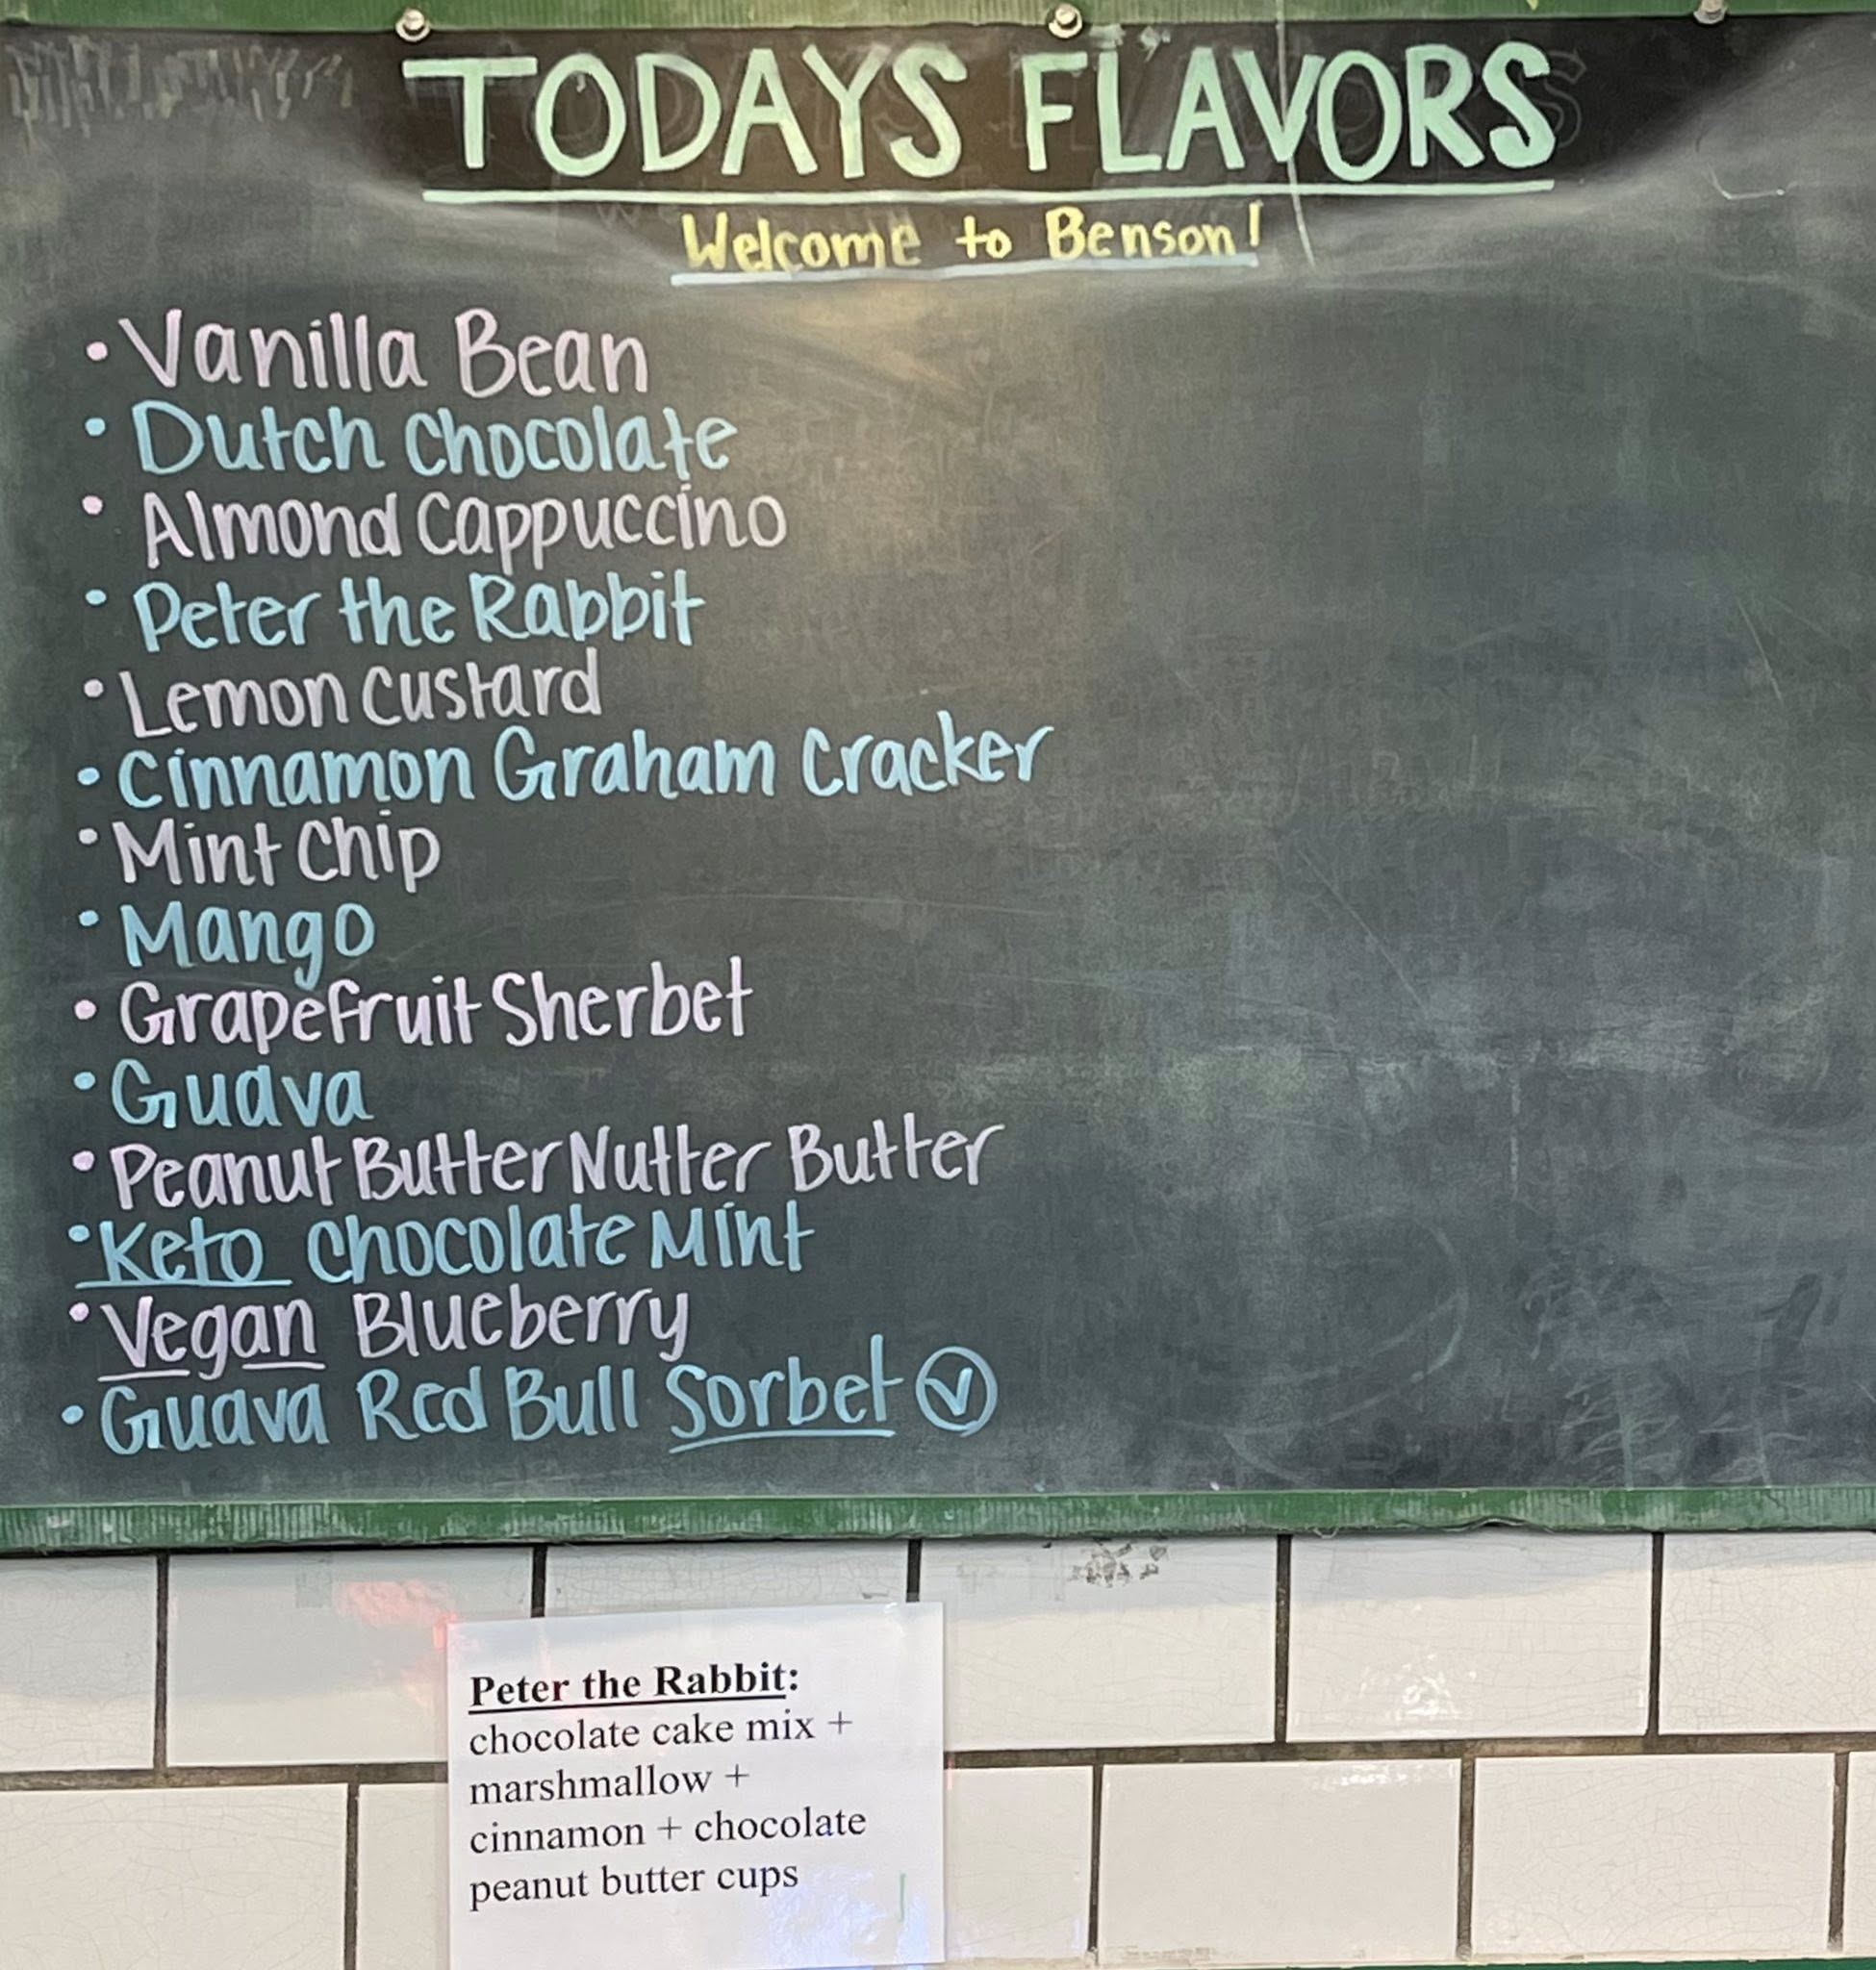 TODAYS FLAVORS
Welcome to Benson!
• Vanilla Bean
• Dutch Chocolate
• Almond Cappuccino
• Peter the Rabbit
• Lemon Custard
• Cinnamon Graham Cracker
• Mint Chip
• Mango
• Grapefruit Sherbet
• Guava
• Peanut Butter Nutter Butter
• Keto Chocolate Mint
• Vegan Blueberry
• Guava Red Bull Sorbet Ⓥ
Peter the Rabbit:
chocolate cake mix +
marshmallow +
cinnamon + chocolate
peanut butter cups